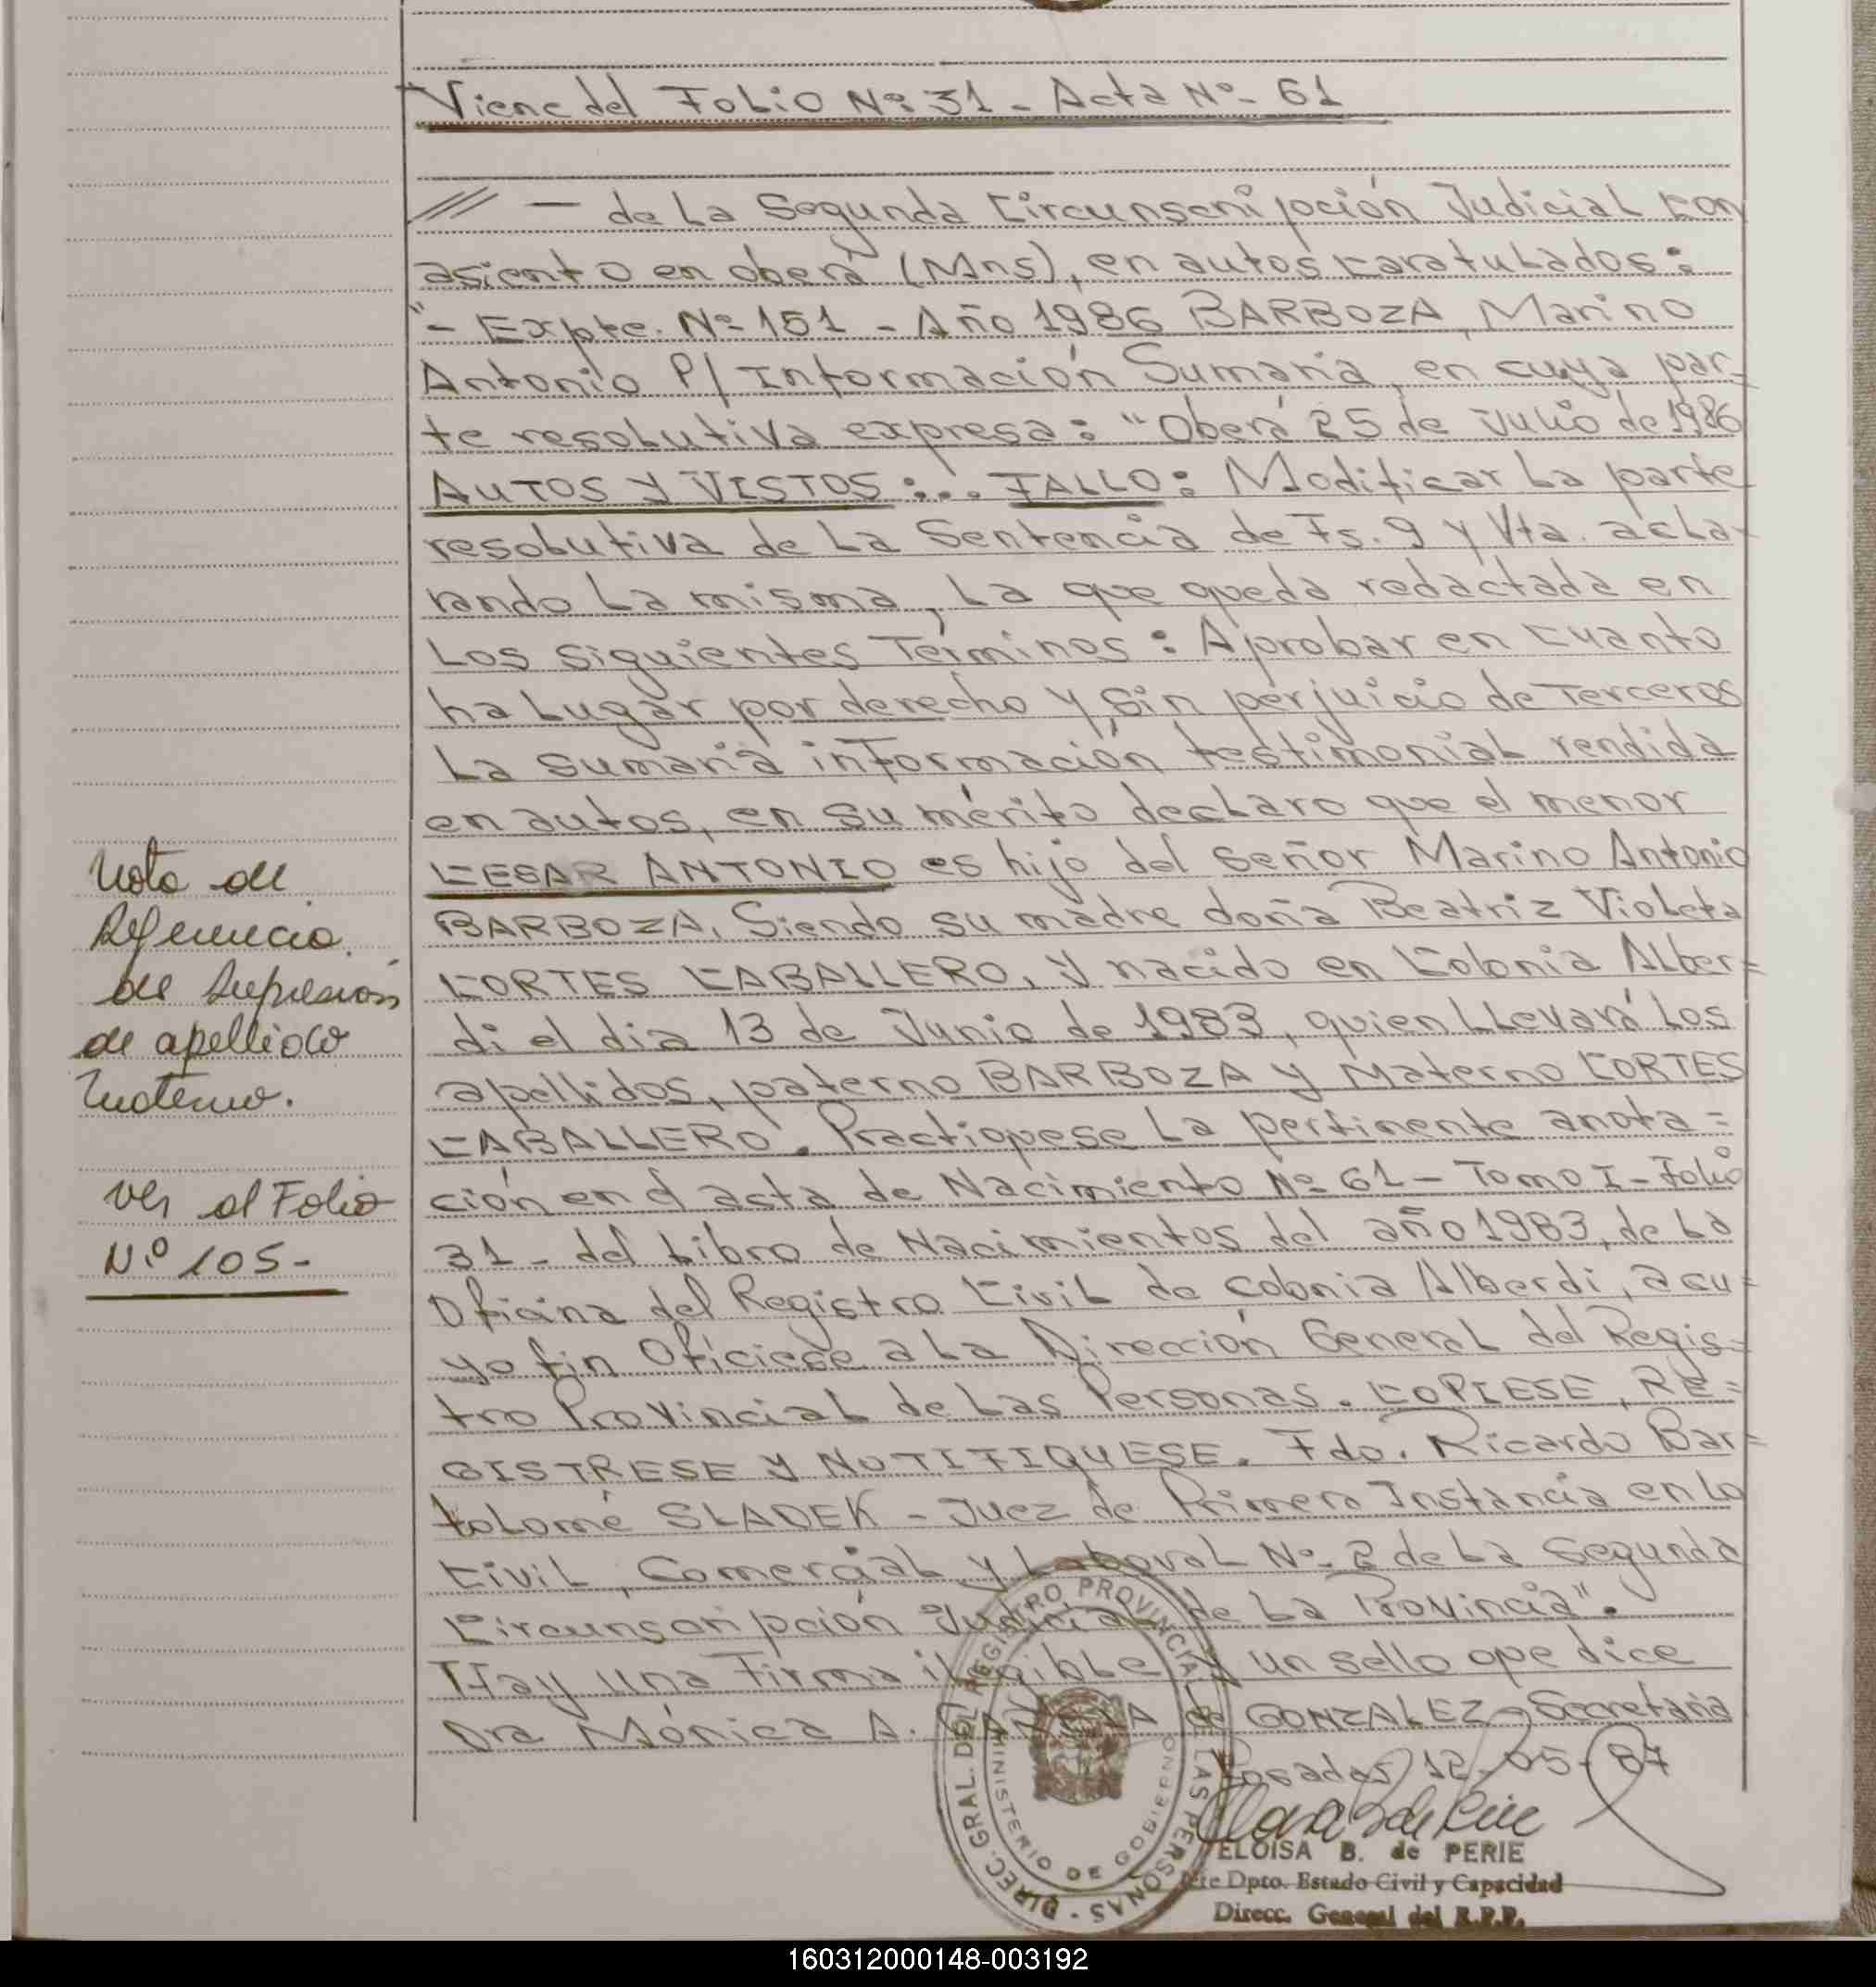 Viene del Folio Nº 31 - Acta Nº - 61
/// — de La Segunda Circunscripción Judicial con
asiento en oberá (Mns), en autos caratulados:
"- Expte. Nº 151 - Año 1986 BARBOZA, Marino
Antonio P/ Información Sumaria, en cuya par-
te resolutiva expresa: "Oberá 25 de Julio de 1986
AUTOS Y VISTOS:... FALLO: Modificar La parte
resolutiva de La Sentencia de Fs. 9 y Vta. acla-
rando La misma, La que queda redactada en
Los siguientes Términos: Aprobar en cuanto
ha Lugar por derecho y sin perjuicio de Terceros
La sumaria información testimonial rendida
en autos, en su mérito declaro que el menor
CESAR ANTONIO es hijo del señor Marino Antonio
BARBOZA, Siendo su madre doña Beatriz Violeta
CORTES CABALLERO, y nacido en Colonia Alber=
di el dia 13 de Junio de 1983, quien LLevará Los
apellidos, paterno BARBOZA y Materno CORTES
CABALLERO. Practiquese La pertinente anota=
ción en el acta de Nacimiento Nº 61 - Tomo I - Folio
31 - del Libro de Nacimientos del año 1983, de La
Oficina del Registro Civil de Colonia Alberdi, a cu=
yo fin Ofíciese a La Dirección General del Regis-
tro Provincial de Las Personas. COPIESE, RE=
GISTRESE Y NOTIFIQUESE. Fdo. Ricardo Bar=
tolomé SLADEK - Juez de Primera Instancia en Lo
Civil, Comercial y Laboral Nº 2 de La Segunda
Circunscripción Judicial de La Provincia".
Hay una Firma ilegible y un sello que dice
Dra Mónica A. de GONZALEZ - Secretaria
Posadas, 12-05-87
ELOISA B. de PERIE
Jefe Dpto. Estado Civil y Capacidad
Direcc. General del R.P.P.
Nota de
Referencia
de Supresión
de apellido
Materno.
Ver al Folio
Nº 105-
DIREC. GRAL. DEL REGISTRO PROVINCIAL DE LAS PERSONAS -
MINISTERIO DE GOBIERNO
160312000148-003192